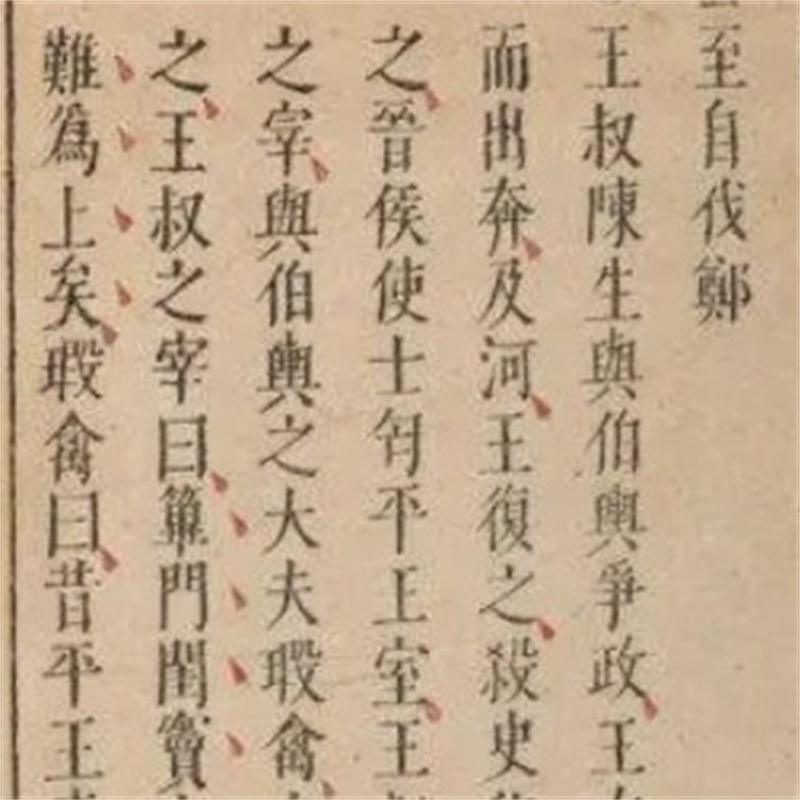 至自伐鄭
王叔陳生與伯輿爭政王
而出奔及河王復之殺史
之晉侯使士匄平王室王
之宰與伯輿之大夫瑕禽
之王叔之宰曰篳門閨竇
難為上矣瑕禽曰昔平王